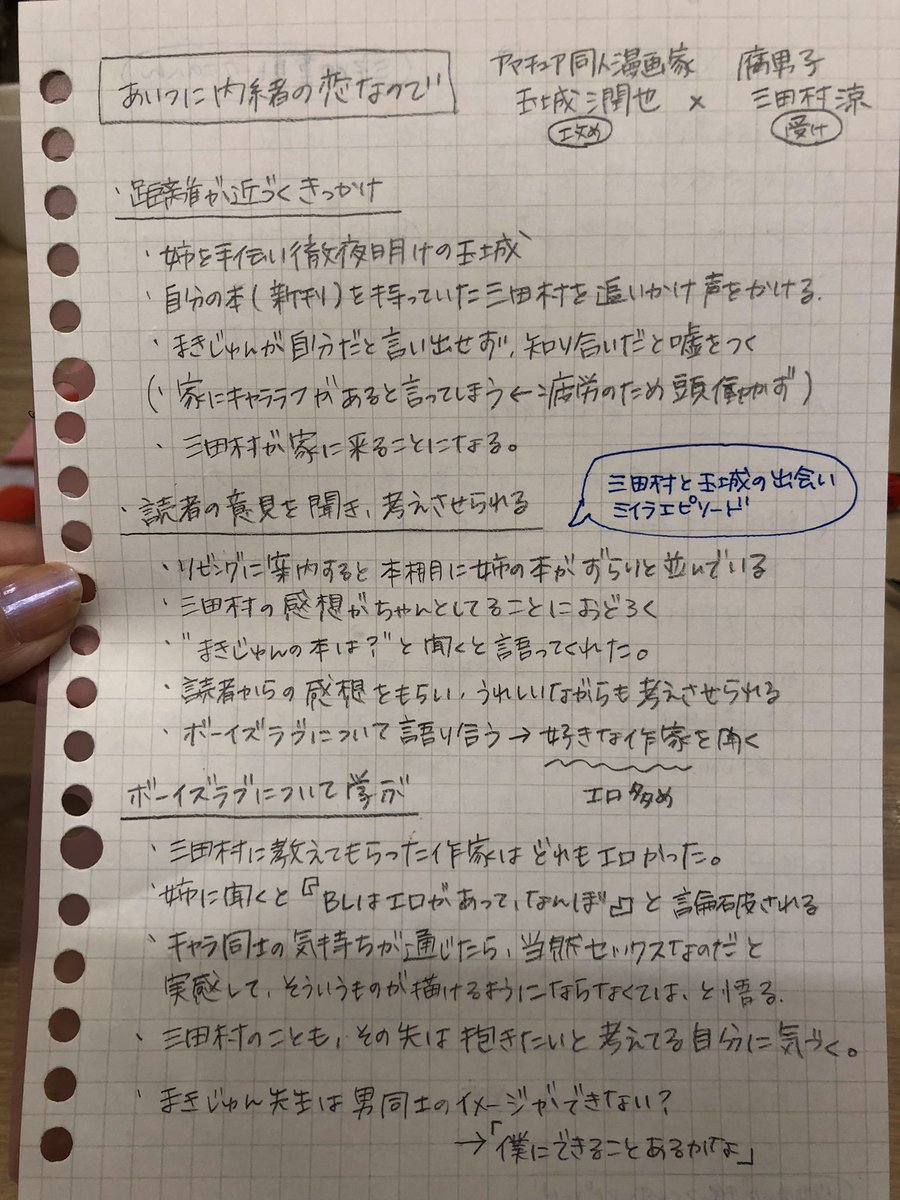 あいつに内緒の恋なので
アマチュア同人漫画家 腐男子
玉城三関也 × 三田村涼
攻め 受け
・距離が近づくきっかけ
・姉を手伝い徹夜明けの玉城
・自分の本(新刊)を持っていた三田村を追いかけ声をかける.
・まきじゅんが自分だと言い出せず、知り合いだと嘘をつく
(・家にキャララフがあると言ってしまう←疲労のため頭働かず)
・三田村が家に来ることになる。
三田村と玉城の出会い
ミイラエピソード
・読者の意見を聞き、考えさせられる
・リビングに案内すると本棚に姉の本がずらりと並んでいる
・三田村の感想がちゃんとしてることにおどろく
・"まきじゅんの本は?"と聞くと語ってくれた。
・読者からの感想をもらい、うれしいながらも考えさせられる
・ボーイズラブについて語り合う→好きな作家を聞く
エロ多め
ボーイズラブについて学ぶ
・三田村に教えてもらった作家はどれもエロかった。
・姉に聞くと『BLはエロがあって、なんぼ』と論破される
・キャラ同士の気持ちが通じたら、当然セックスなのだと
実感して、そういうものが描けるようにならなくては、と悟る.
・三田村のことも、その先は抱きたいと考えてる自分に気づく。
・まきじゅん先生は男同士のイメージができない?
→「僕にできることあるかな」